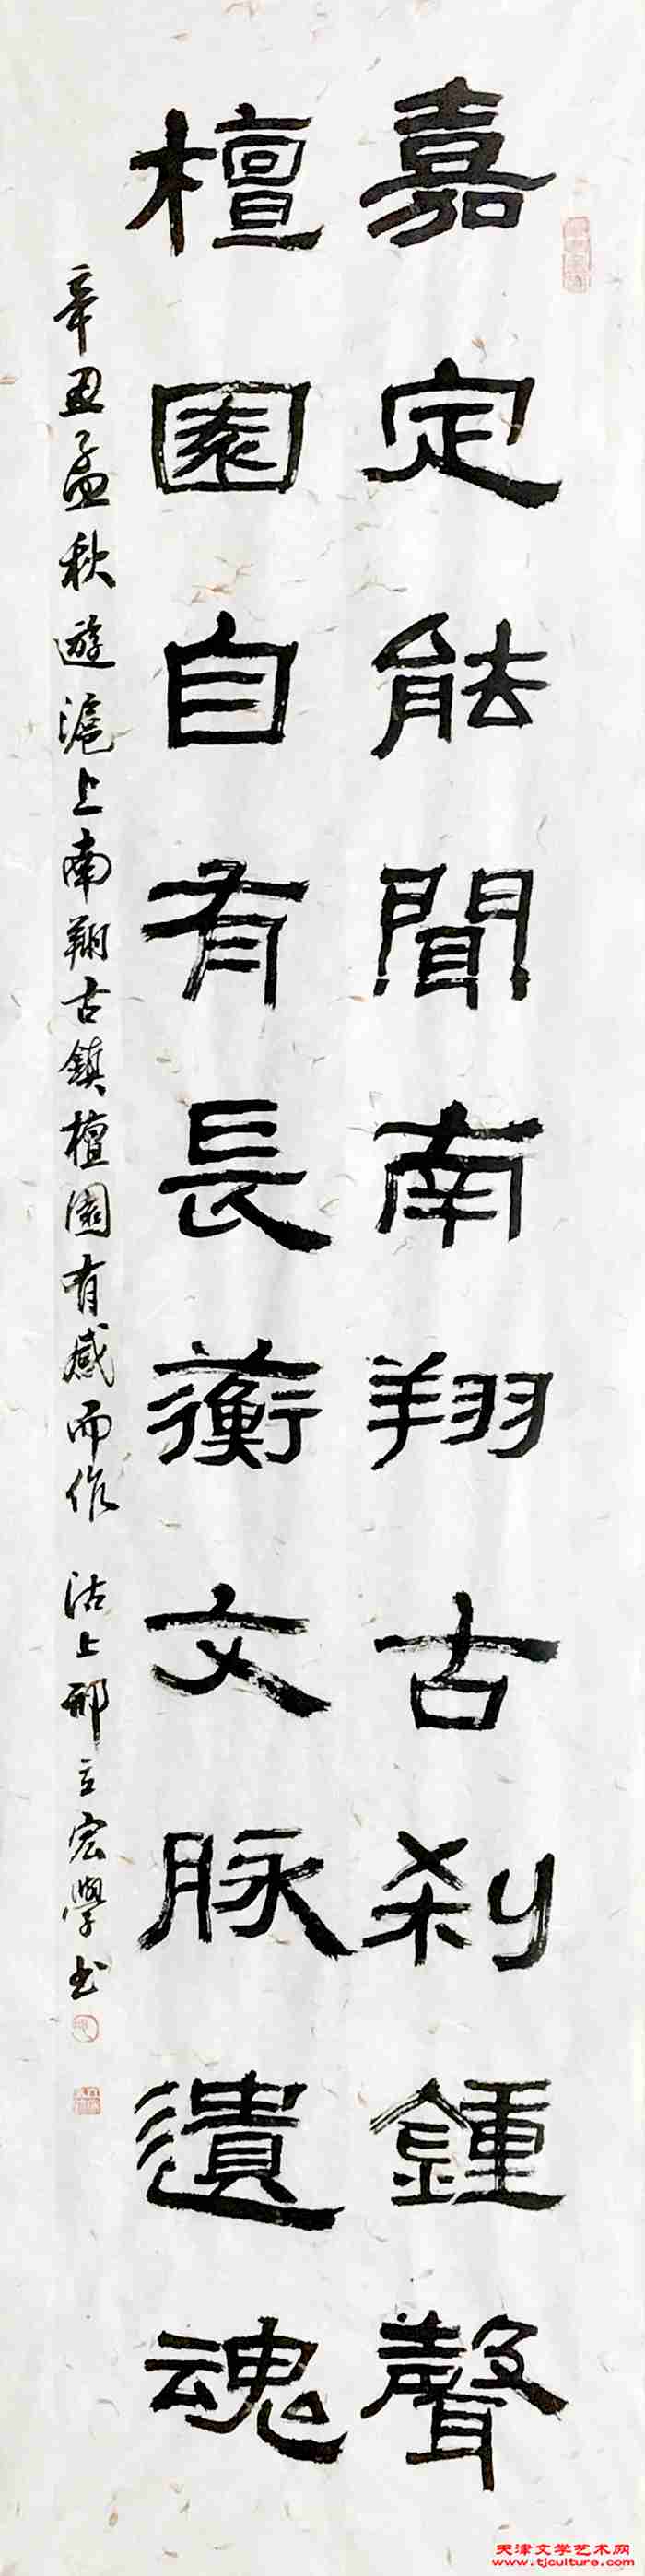 嘉定能聞南翔古刹鍾聲
檀園自有長蘅文脉遺魂
辛丑孟秋遊滬上南翔古鎮檀園有感而作 沽上邢立宏學书
天津文学艺术网
www.tjculture.com